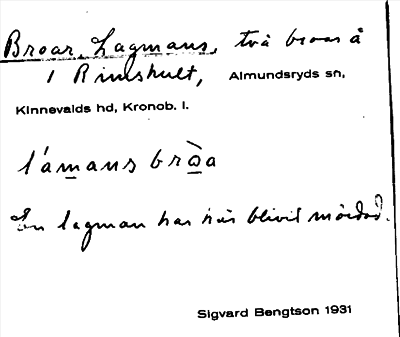 Broar, Lagmans, två broar å
1 Rimshult, Almundsryds sn,
Kinnevalds hd, Kronob. l.
lámans bròa
En lagman har här blivit mördad.
Sigvard Bengtson 1931